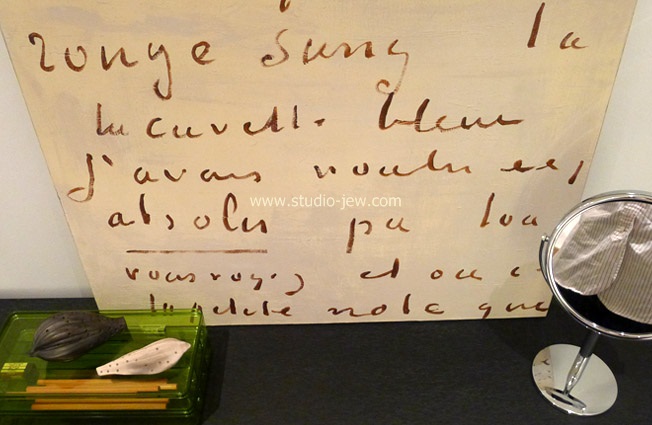 rouge sang la
la cuvette bleue
j'avais voulu
www.studio-jew.com
absolu pa
vous voyez, et
la petite note que